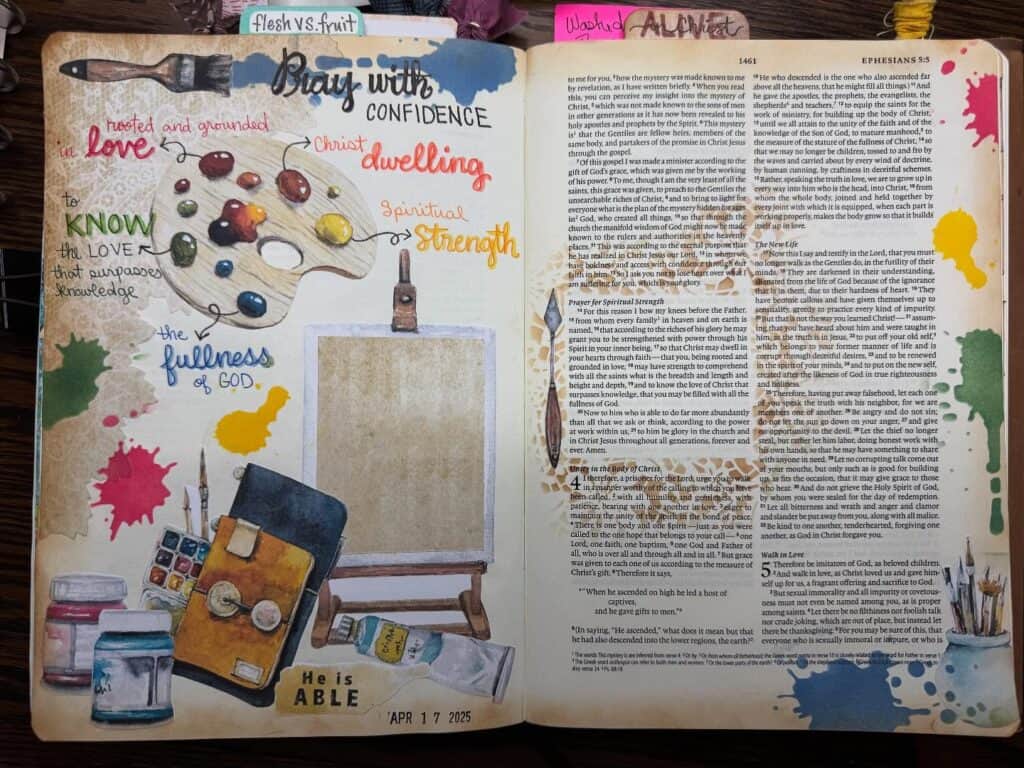 flesh vs. fruit
Washed
ALCHist
Pray with
CONFIDENCE
rooted and grounded
in love
Christ
dwelling
to
KNOW
the LOVE
that surpasses
knowledge
Spiritual
Strength
the
fullness
of GOD
He is
ABLE
APR 17 2025
1461
EPHESIANS 5:5
to me for you, ³how the mystery was made known to me
by revelation, as I have written briefly. ⁴When you read
this, you can perceive my insight into the mystery of
Christ, ⁵which was not made known to the sons of men
in other generations as it has now been revealed to his
holy apostles and prophets by the Spirit. ⁶This mystery
is that the Gentiles are fellow heirs, members of the
same body, and partakers of the promise in Christ Jesus
through the gospel.
⁷Of this gospel I was made a minister according to the
gift of God's grace, which was given me by the working
of his power. ⁸To me, though I am the very least of all the
saints, this grace was given, to preach to the Gentiles the
unsearchable riches of Christ, ⁹and to bring to light for
everyone what is the plan of the mystery hidden for ages
in God, who created all things, ¹⁰so that through the
church the manifold wisdom of God might now be made
known to the rulers and authorities in the heavenly
places. ¹¹This was according to the eternal purpose that
he has realized in Christ Jesus our Lord, ¹²in whom we
have boldness and access with confidence through our
faith in him. ¹³So I ask you not to lose heart over what I
am suffering for you, which is your glory.
Prayer for Spiritual Strength
¹⁴For this reason I bow my knees before the Father,
¹⁵from whom every family in heaven and on earth is
named, ¹⁶that according to the riches of his glory he may
grant you to be strengthened with power through his
Spirit in your inner being, ¹⁷so that Christ may dwell in
your hearts through faith—that you, being rooted and
grounded in love, ¹⁸may have strength to comprehend
with all the saints what is the breadth and length and
height and depth, ¹⁹and to know the love of Christ that
surpasses knowledge, that you may be filled with all the
fullness of God.
²⁰Now to him who is able to do far more abundantly
than all that we ask or think, according to the power
at work within us, ²¹to him be glory in the church and
in Christ Jesus throughout all generations, forever and
ever. Amen.
Unity in the Body of Christ
4 I therefore, a prisoner for the Lord, urge you to walk
in a manner worthy of the calling to which you have
been called, ²with all humility and gentleness, with
patience, bearing with one another in love, ³eager to
maintain the unity of the Spirit in the bond of peace.
⁴There is one body and one Spirit—just as you were
called to the one hope that belongs to your call—⁵one
Lord, one faith, one baptism, ⁶one God and Father of
all, who is over all and through all and in all. ⁷But grace
was given to each one of us according to the measure of
Christ's gift. ⁸Therefore it says,
"When he ascended on high he led a host of
captives,
and he gave gifts to men."
⁹(In saying, "He ascended," what does it mean but that
he had also descended into the lower regions, the earth?
¹⁰He who descended is the one who also ascended far
above all the heavens, that he might fill all things.) ¹¹And
he gave the apostles, the prophets, the evangelists, the
shepherds and teachers, ¹²to equip the saints for the
work of ministry, for building up the body of Christ,
¹³until we all attain to the unity of the faith and of the
knowledge of the Son of God, to mature manhood, to
the measure of the stature of the fullness of Christ, ¹⁴so
that we may no longer be children, tossed to and fro by
the waves and carried about by every wind of doctrine,
by human cunning, by craftiness in deceitful schemes.
¹⁵Rather, speaking the truth in love, we are to grow up in
every way into him who is the head, into Christ, ¹⁶from
whom the whole body, joined and held together by
every joint with which it is equipped, when each part is
working properly, makes the body grow so that it builds
itself up in love.
The New Life
¹⁷Now this I say and testify in the Lord, that you must
no longer walk as the Gentiles do, in the futility of their
minds. ¹⁸They are darkened in their understanding,
alienated from the life of God because of the ignorance
that is in them, due to their hardness of heart. ¹⁹They
have become callous and have given themselves up to
sensuality, greedy to practice every kind of impurity.
²⁰But that is not the way you learned Christ!—²¹assum-
ing that you have heard about him and were taught in
him, as the truth is in Jesus, ²²to put off your old self,
which belongs to your former manner of life and is
corrupt through deceitful desires, ²³and to be renewed
in the spirit of your minds, ²⁴and to put on the new self,
created after the likeness of God in true righteousness
and holiness.
²⁵Therefore, having put away falsehood, let each one
of you speak the truth with his neighbor, for we are
members one of another. ²⁶Be angry and do not sin;
do not let the sun go down on your anger, ²⁷and give
no opportunity to the devil. ²⁸Let the thief no longer
steal, but rather let him labor, doing honest work with
his own hands, so that he may have something to share
with anyone in need. ²⁹Let no corrupting talk come out
of your mouths, but only such as is good for building
up, as fits the occasion, that it may give grace to those
who hear. ³⁰And do not grieve the Holy Spirit of God,
by whom you were sealed for the day of redemption.
³¹Let all bitterness and wrath and anger and clamor
and slander be put away from you, along with all malice.
³²Be kind to one another, tenderhearted, forgiving one
another, as God in Christ forgave you.
Walk in Love
5 Therefore be imitators of God, as beloved children.
²And walk in love, as Christ loved us and gave him-
self up for us, a fragrant offering and sacrifice to God.
³But sexual immorality and all impurity or covetous-
ness must not even be named among you, as is proper
among saints. ⁴Let there be no filthiness nor foolish talk
nor crude joking, which are out of place, but instead let
there be thanksgiving. ⁵For you may be sure of this, that
everyone who is sexually immoral or impure, or who is